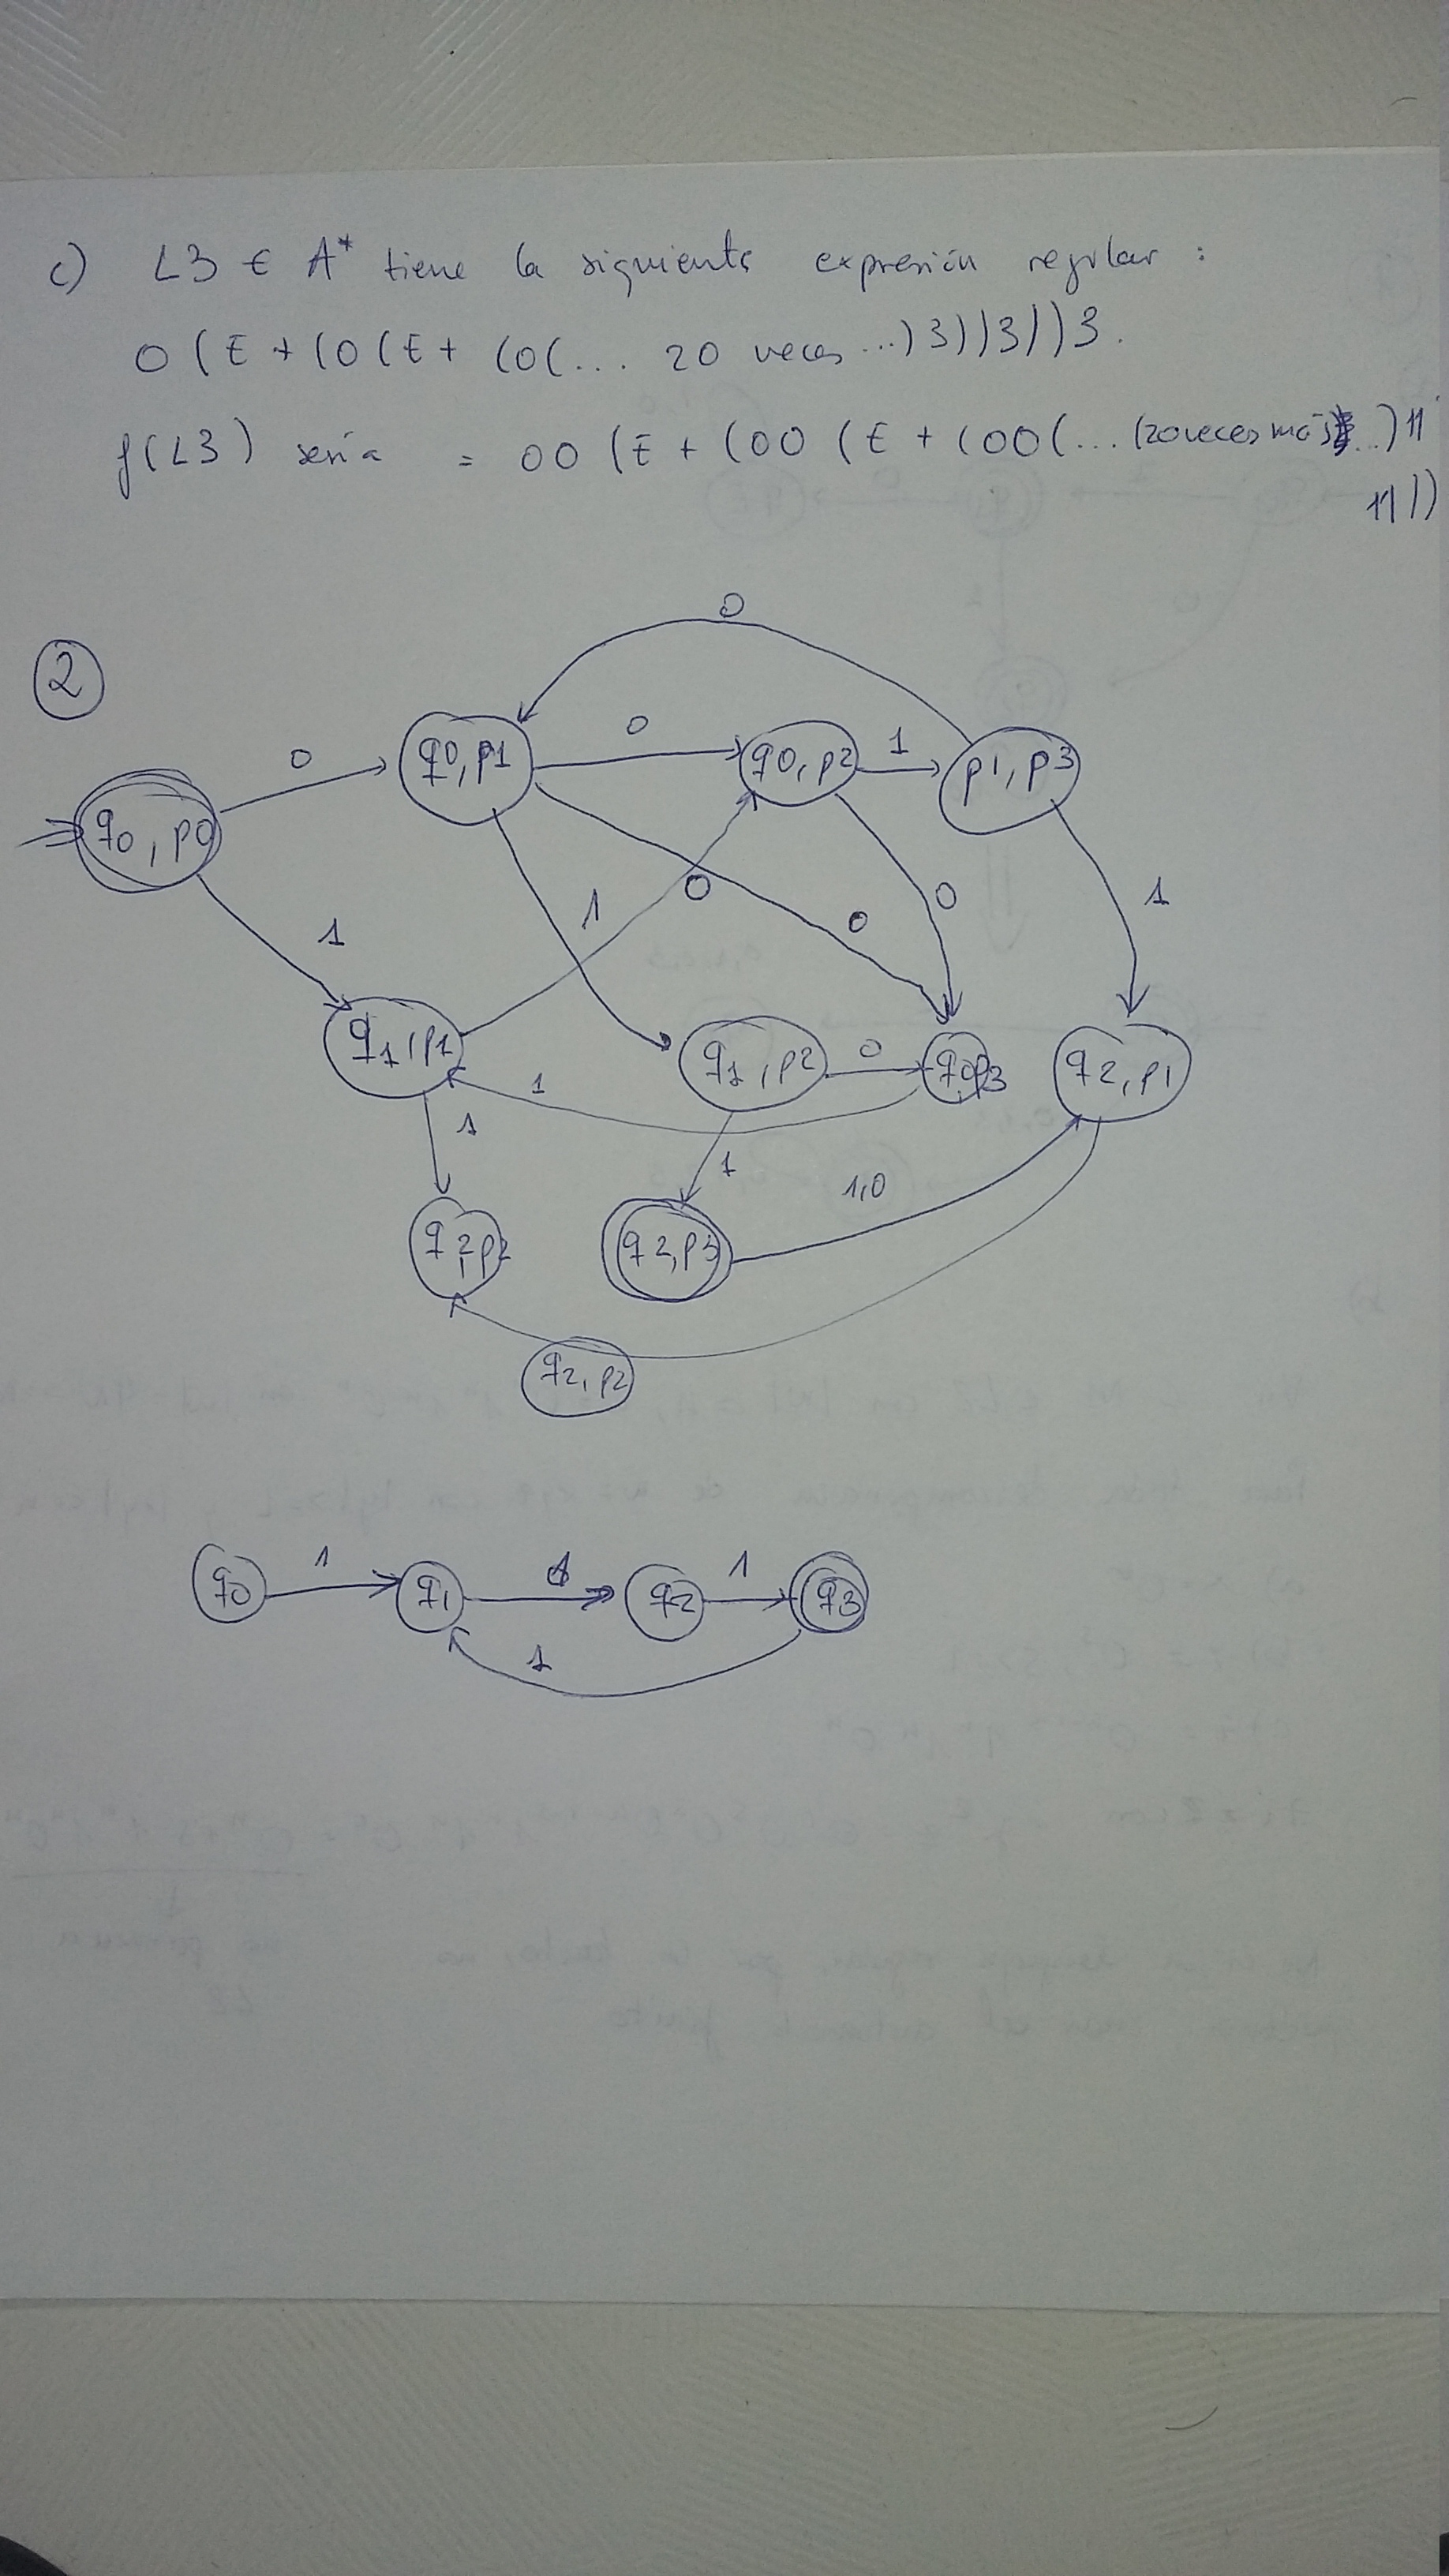 c) L3 ∈ A* tiene la siguiente expresión regular :
0 (E + (0 (E + (0 (... 20 veces ...) 3))3))3.
f(L3) sería = 00 (E + (00 (E + (00 (... (20 veces más ...) 11
11))
2
0
0
0
1
q0,p0
q0,p1
q0,p2
p1,p3
1
1
0
0
0
1
q1,p1
q1,p2
0
q0p3
q2,p1
1
1
1
1,0
q2,p2
q2,p3
q2,p2
q0
1
q1
q2
1
q3
1